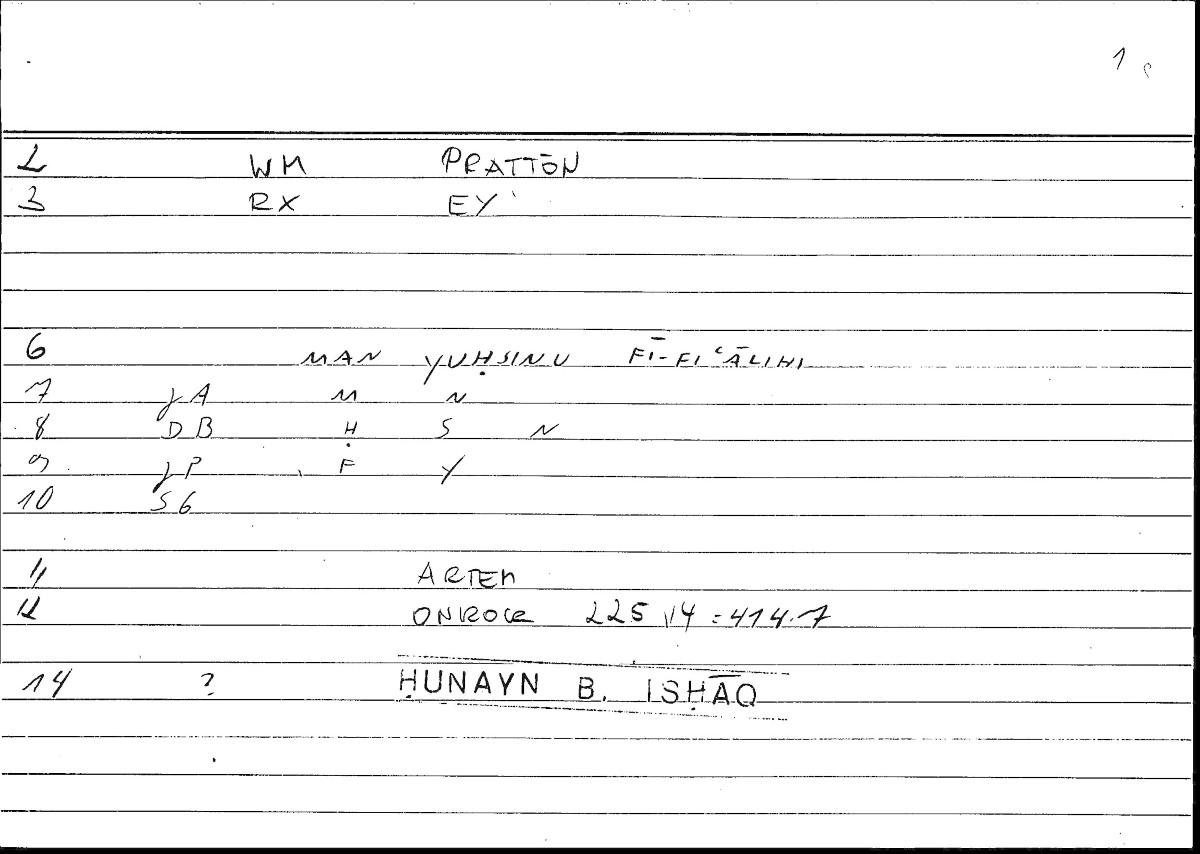 1
2 WM PRATTŌN
3 RX EY
6 MAN YUḤSINU FĪ-FIʿĀLIHI
7 JA M N
8 DB Ḥ S N
9 JP F Y
10 S6
11 ARTEM
12 225 14 = 414.7
14 ? ḤUNAYN B. ISḤĀQ